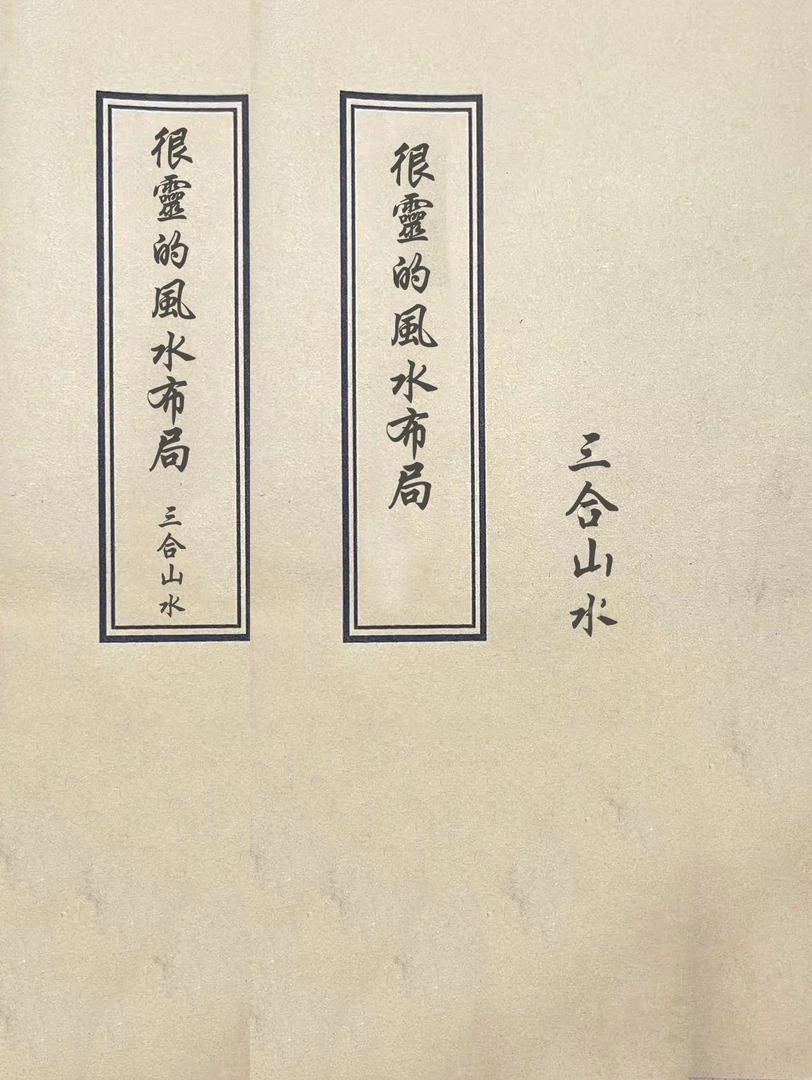 很靈的風水布局
三合山水
很靈的風水布局
三合山水